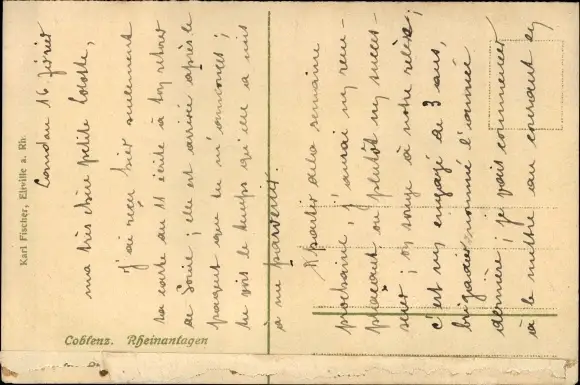 Karl Fischer, Eltville a. Rh.
Coblenz. Rheinanlagen
16 février
ma très chère petite
J'ai reçu hier seulement
ta carte du 11 écrite à ton retour
de ; elle est arrivée après le
paquet que tu m'annonces !
tu vois le temps qu'elle a mis
à me parvenir.
A partir de la semaine
prochaine j'aurai mon rem-
plaçant ou plutôt mon succes-
seur ; on songe à notre relève ;
c'est un engagé de 3 ans,
brigadier nommé l'année
dernière ; je vais commencer
à le mettre au courant de